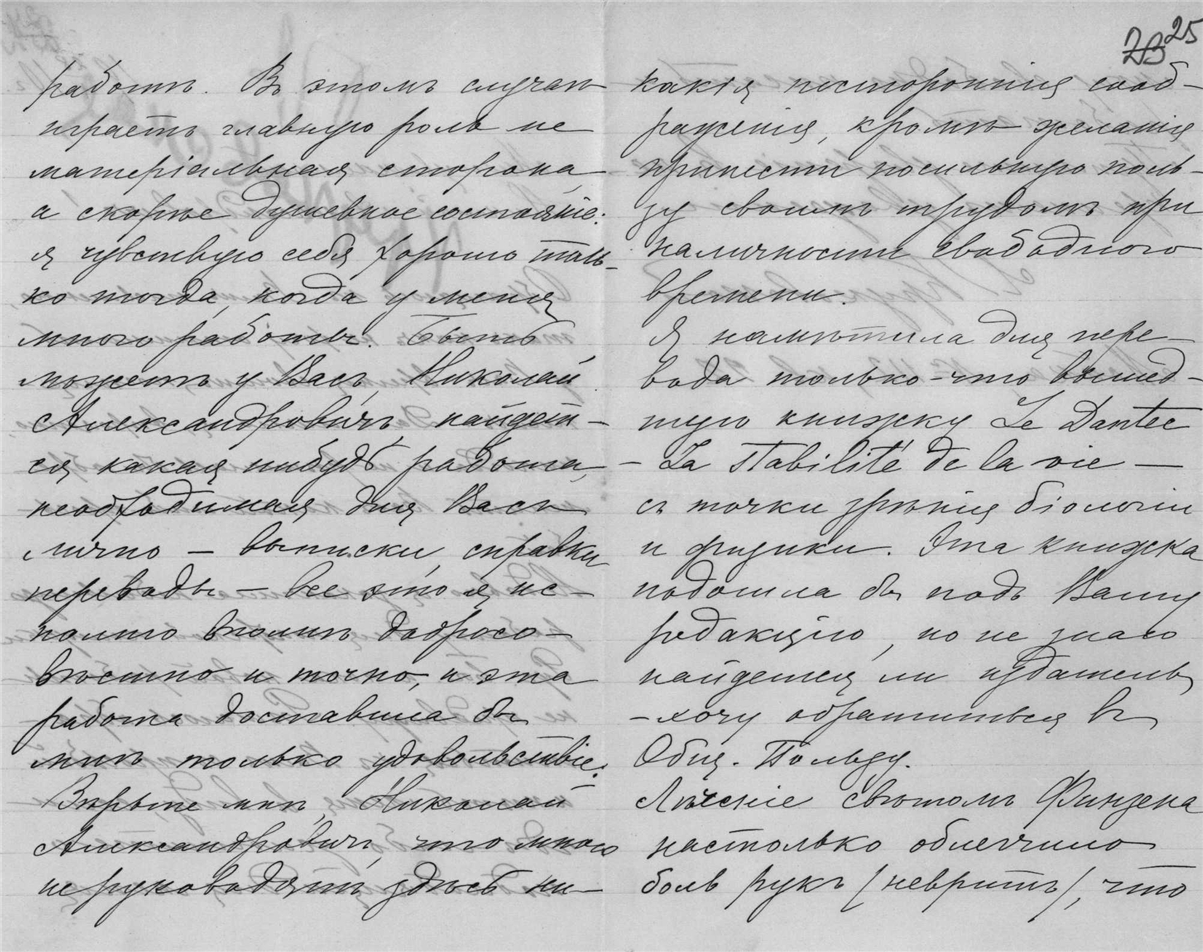 работъ. Въ этомъ случаѣ
играетъ главную роль не
матеріальная сторона,
а скорѣе душевное состоянiе:
я чувствую себя хорошо толь-
ко тогда, когда у меня
много работы. Быть
можетъ у Васъ, Николай
Александровичъ, найдет-
ся какая нибудь работа,
необходимая для Васъ
лично – выписки, справки,
переводы – все это я ис-
полню вполнѣ добросо-
вѣстно и точно, и эта
работа доставила бы
мнѣ только удовольствіе.
Вѣрьте мнѣ, Николай
Александровичъ, что мною
не руководятъ здѣсь ни-
25
какія постороннія сооб-
раженія, кромѣ желанія
принести посильную поль-
зу своимъ трудомъ при
наличности свободного
времени.
Я намѣтила для пере-
вода только-что вышед-
шую книжку Le Dantec
– La Stabilité de la vie –
съ точки зрѣнія біологіи
и физики. Эта книжка
подошла бы подъ Вашу
редакцію, но не знаю
найдется ли издатель
– хочу обратиться въ
Общ. Пользу.
Лѣченіе свѣтомъ Финзена
настолько облегчило
боль рукъ (невритъ), что